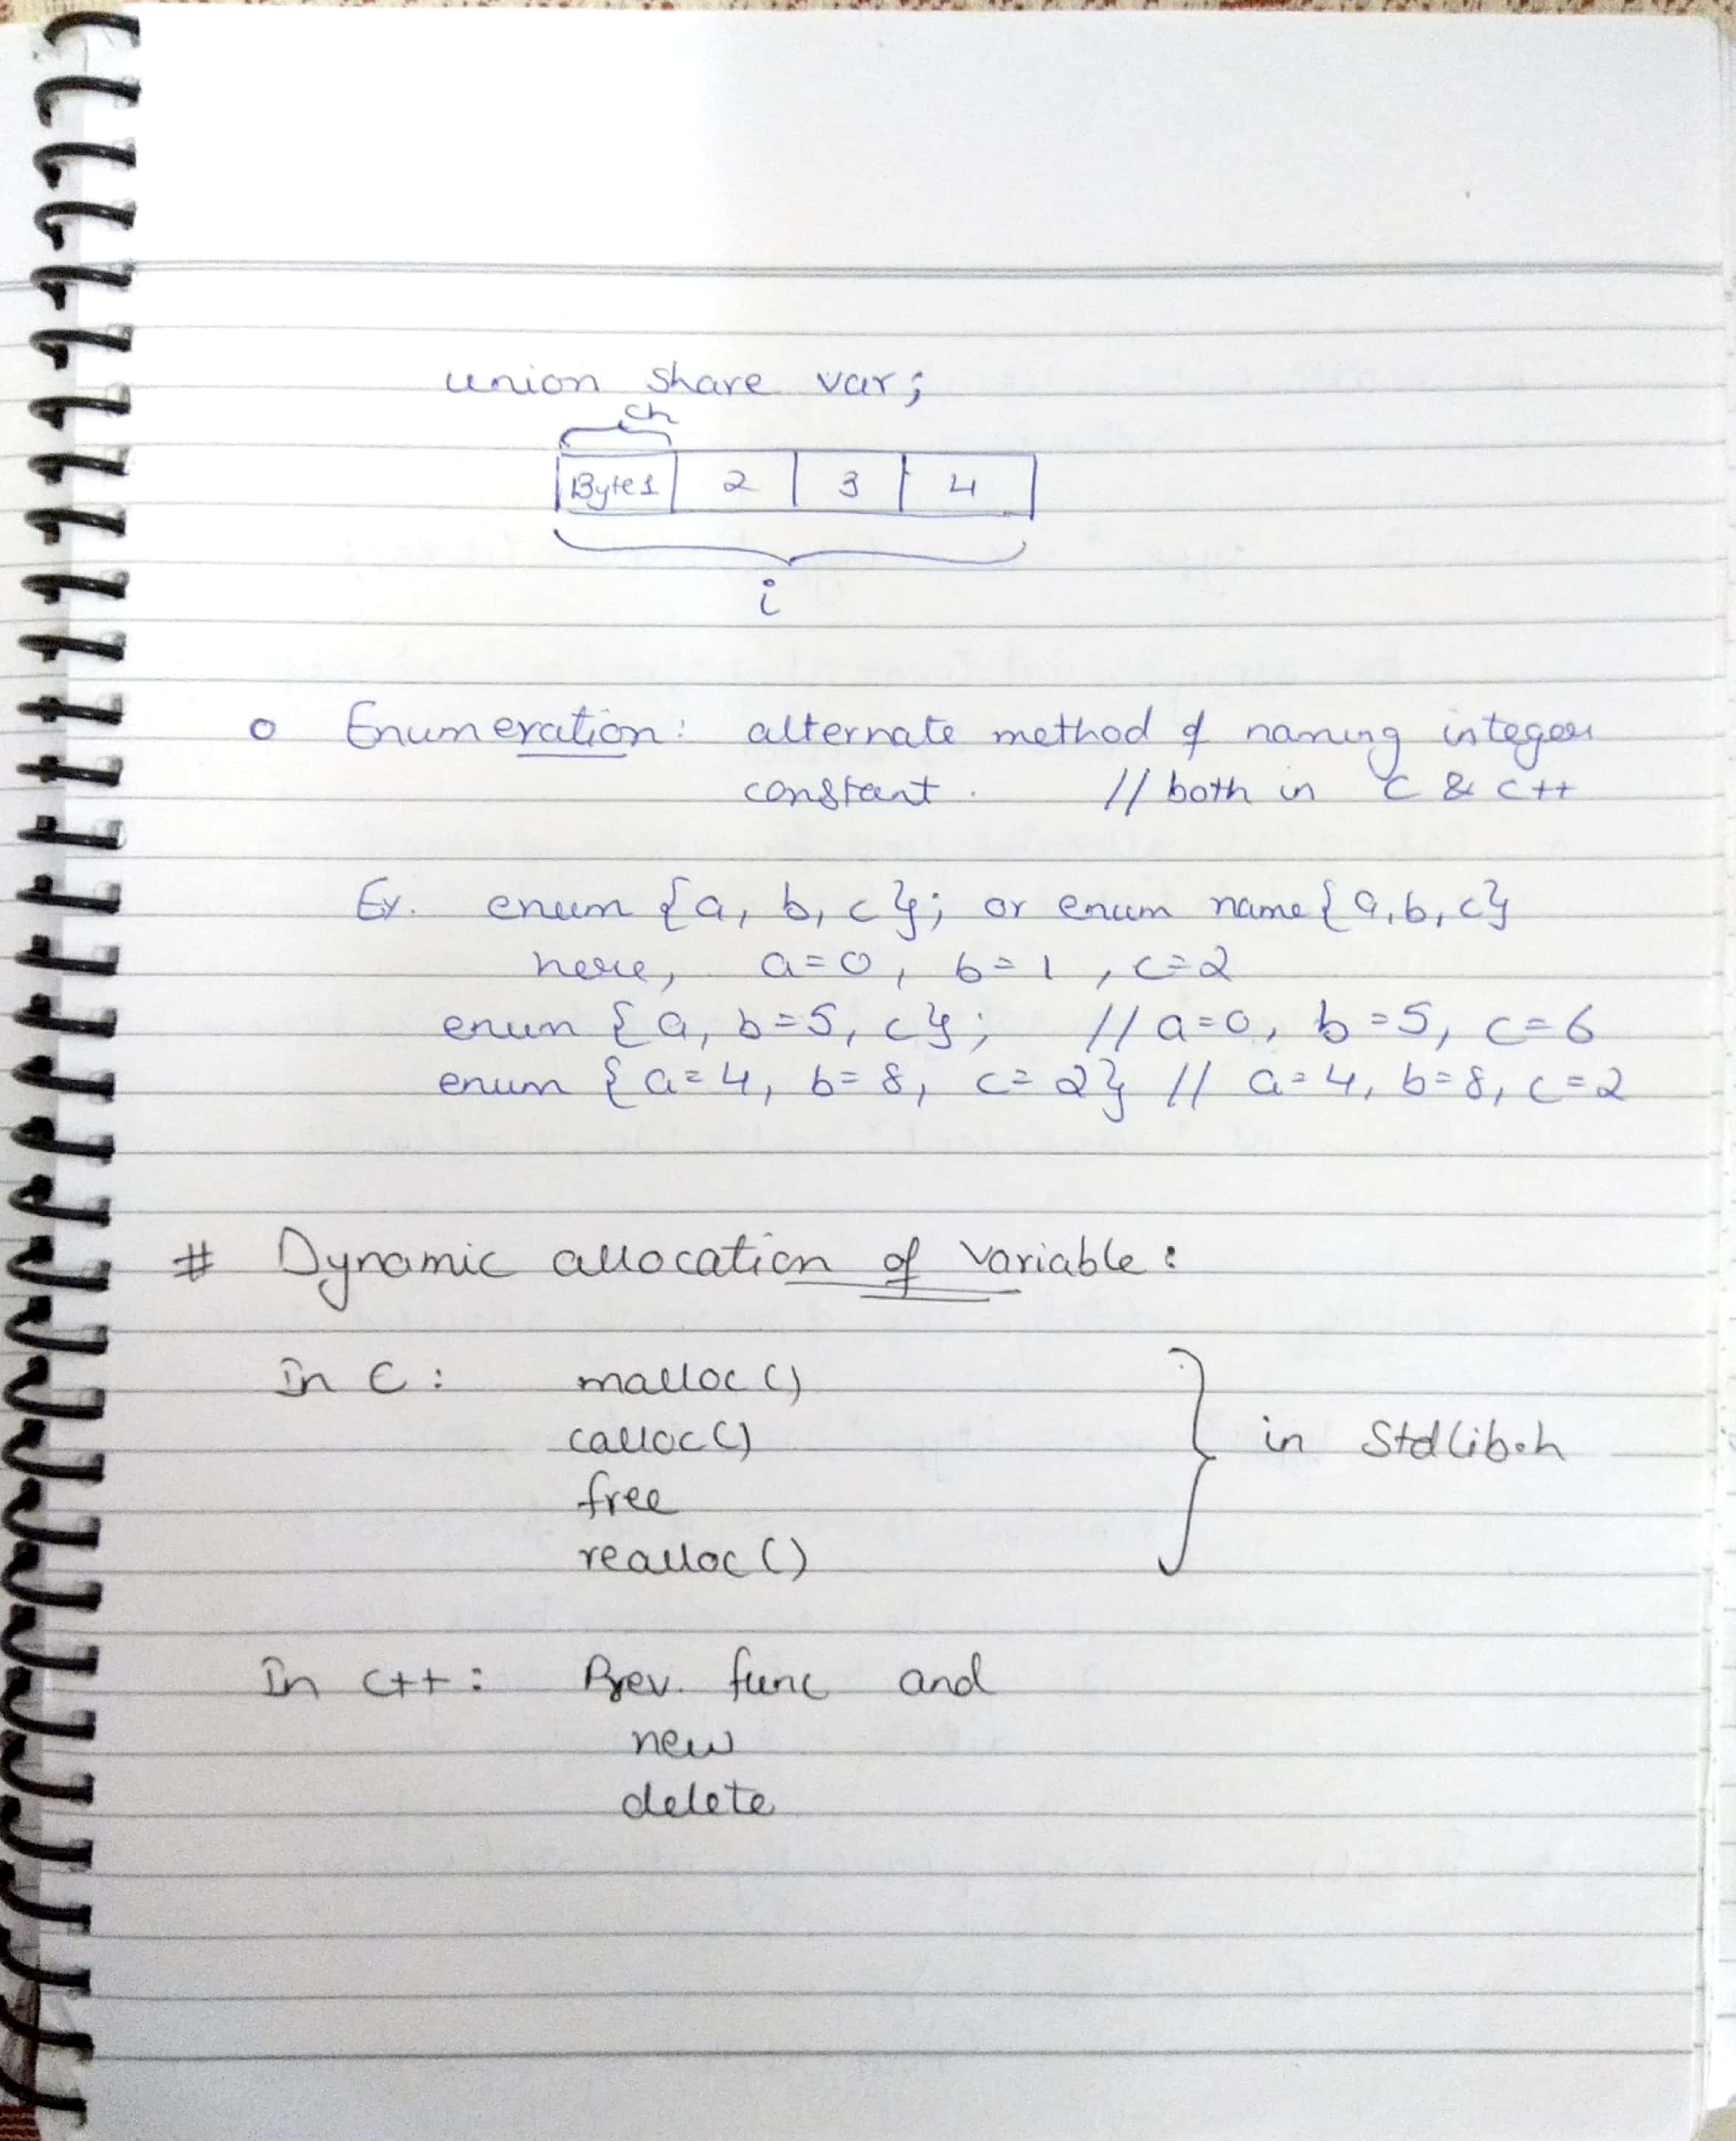 union share var;
ch
Byte1 2 3 4
i
o Enumeration: alternate method of naming integer
constant. // both in C & C++
Ex. enum {a, b, c}; or enum name{a,b,c}
here, a=0, b=1, c=2
enum {a, b=5, c}; // a=0, b=5, c=6
enum {a=4, b=8, c=2} // a=4, b=8, c=2
# Dynamic allocation of variable:
In C: malloc()
calloc()
free
in Stdlib.h
realloc()
In C++: Prev. func and
new
delete